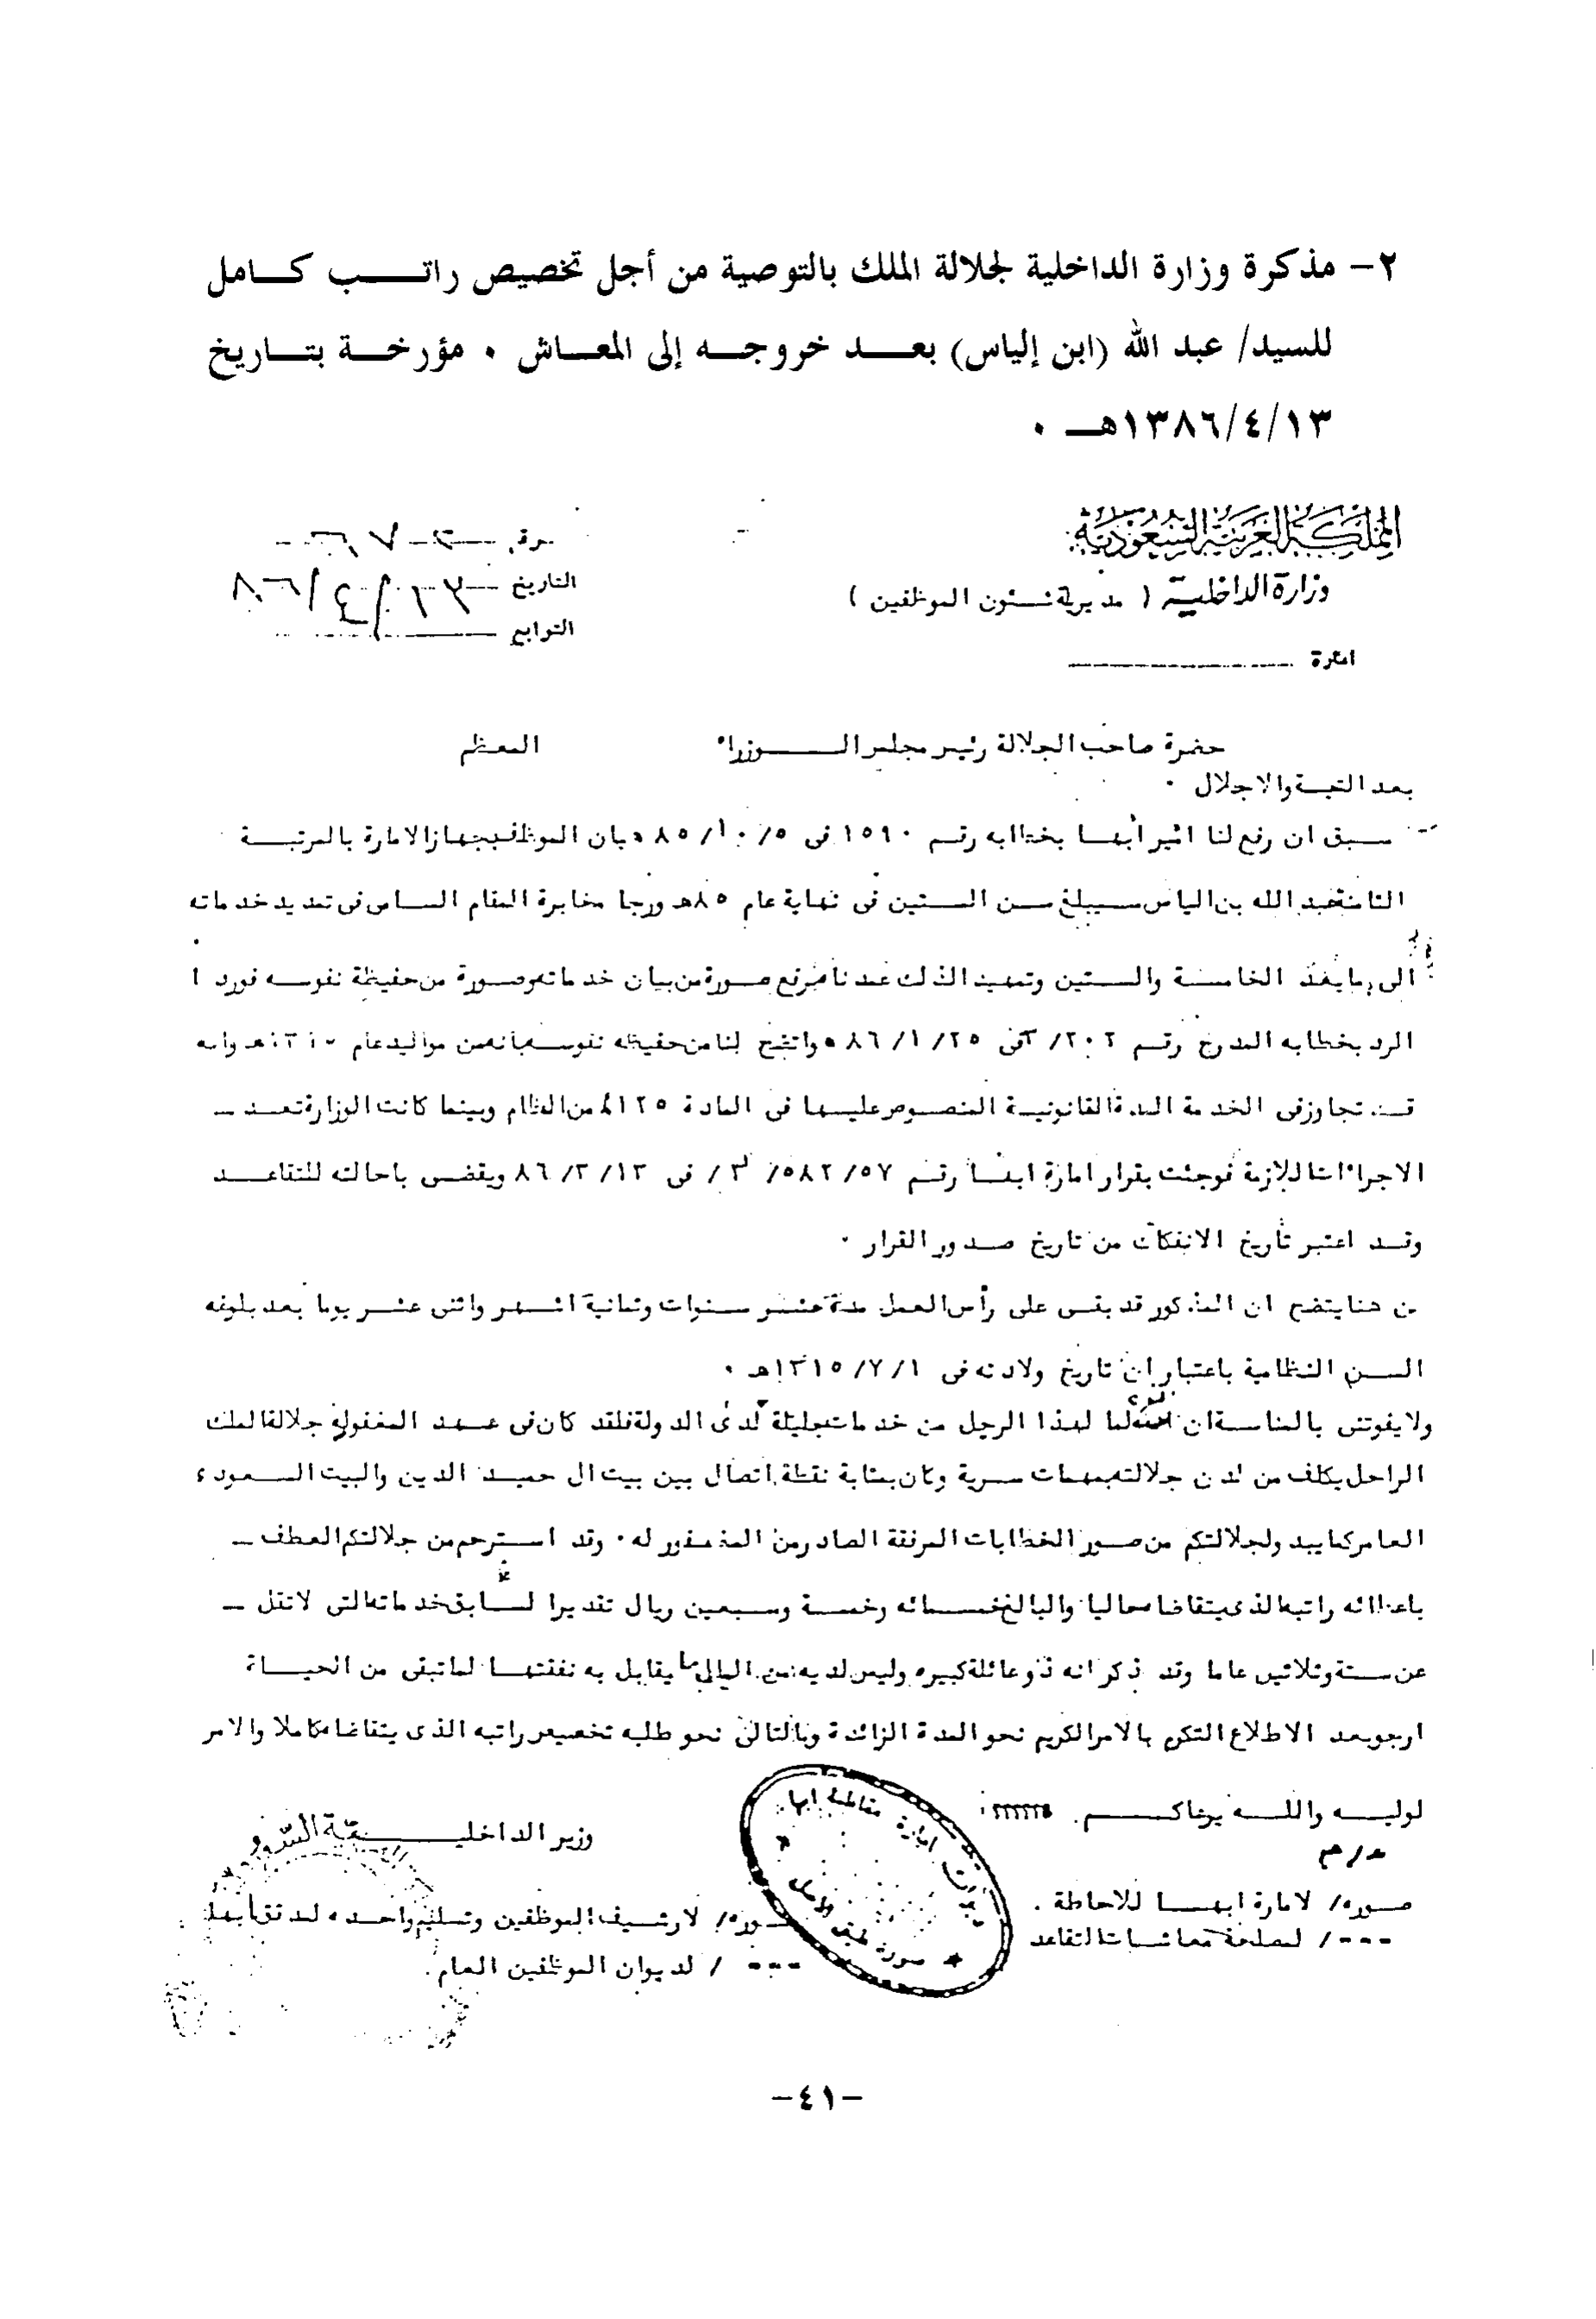 ٢- مذكرة وزارة الداخلية لجلالة الملك بالتوصية من أجل تخصيص راتب كامل
للسيد/ عبد الله (ابن إلياس) بعد خروجه إلى المعاش ٠ مؤرخة بتاريخ
١٣٨٦/٤/١٣هـ ٠
المملكة العربية السعودية
وزارة الداخلية ( مديرية شئون الموظفين )
التاريخ ١٣/٤/٨٦
التوابع
حضرة صاحب الجلالة رئيس مجلس الوزراء المعظم
بعد التحية والاجلال ٠
سبق ان رفع لنا امير أبها بخطابه رقم ١٥٩٠ فى ٥/١٠/٨٥ هـ بان الموظف بجهاز الامارة بالمرتبة
الثامنة عبد الله بن الياس سيبلغ سن الستين فى نهاية عام ٨٥هـ ورجا مخابرة المقام السامى فى تمديد خدماته
الى ما بعد الخامسة والستين وتمهيدا لذلك عمدناه برفع صورة من بيان خدماته وصورة من حفيظة نفوسه فورد ا
الرد بخطابه المدرج رقم ٢٠٢/ فى ٢٥/١/٨٦ هـ واتضح لنا من حفيظه نفوسه بانه من مواليد عام ١٣١٥هـ وانه
قد تجاوز فى الخدمة المدة القانونية المنصوص عليها فى المادة ١٢٥ من النظام وبينما كانت الوزارة تعد ـ
الاجراءات اللازمة فوجئت بقرار امارة ابها رقم ٥٧/٥٨٢/ ٣/ فى ١٣/٣/٨٦ ويقضى باحالته للتقاعد
وقد اعتبر تاريخ الانفكاك من تاريخ صدور القرار ٠
من هنا يتضح ان المذكور قد بقى على رأس العمل مدة عشر سنوات وثمانية اشهر واثنى عشر يوما بعد بلوغه
السن النظامية باعتبار ان تاريخ ولادته فى ١/٧/١٣١٥هـ ٠
ولا يفوتنى بالمناسبة ان انوه لما لهذا الرجل من خدمات جليلة لدى الدولة فلقد كان فى عهد المغفور له جلالة الملك
الراحل يكلف من لدن جلالته بمهمات سرية وكان بمثابة نقطة اتصال بين بيت ال حميد الدين والبيت السعودى
العامر كما يبدو لجلالتكم من صور الخطابات المرفقة الصادر من المغفور له ٠ وقد استرحم من جلالتكم العطف ـ
باعطائه راتبه الذى يتقاضاه حاليا والبالغ خمسمائه وخمسة وسبعين ريال تقديرا لسابق خدماته التى لا تقل ـ
عن ستة وثلاثين عاما وقد ذكر انه ذو عائلة كبيره وليس لديه من المال ما يقابل به نفقتها لما تبقى من الحياة
ارجو بعد الاطلاع التكرم بالامر الكريم نحو المدة الزائدة وبالتالى نحو طلبه تخصيص راتبه الذى يتقاضاه كاملا والامر
لوليه والله يرعاكم ٠
وزير الداخلية
صوره/ لامارة ابها للاحاطة ٠
--- / لمصلحة معاشات التقاعد
صوره/ لارشيف الموظفين وتسليم واحده
--- / لديوان الموظفين العام ٠
امارة مقاطعة ابها
صورة طبق الاصل
-٤١-